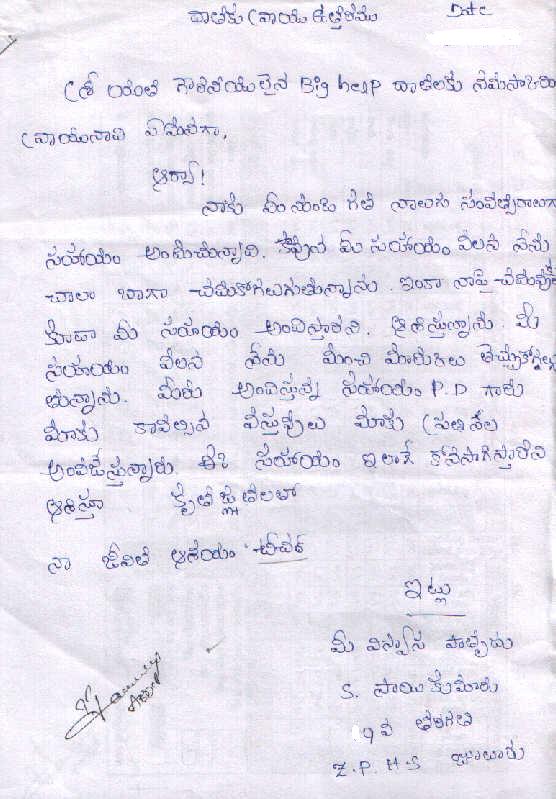 దాతకు వ్రాయు ఉత్తరము Date
శ్రీ యుత గౌరవనీయులైన Big help దాతలకు నమస్కారం
వ్రాయునది ఏమనగా,
ఆర్యా!
నాకు మీ నుండి గత నాలుగు సంవత్సరాలుగా
సహాయం అందుచున్నది. కావున మీ సహాయం వలన నేను
చాలా బాగా చదువుకోగలుగుతున్నాను. ఇంకా నాపై చదువులకు
కూడా మీ సహాయం అందిస్తారని. ఆశిస్తున్నాను. మీ
సహాయం వలన నేను మంచి మార్కులు తెచ్చుకోగల్గు
తున్నాను. మీరు అందిస్తున్న సహాయం P.D గారు
మాకు కావల్సిన వస్తువులు మాకు ప్రతినెల
అందజేస్తున్నారు ఈ సహాయం ఇలాగే కొనసాగిస్తారని
ఆశిస్తూ కృతజ్ఞతలతో
నా జీవిత ఆశయం టీచర్
ఇట్లు
మీ విశ్వాస పాత్రుడు
S. సాయి కుమారు
9వ తరగతి
Z.P.H.S